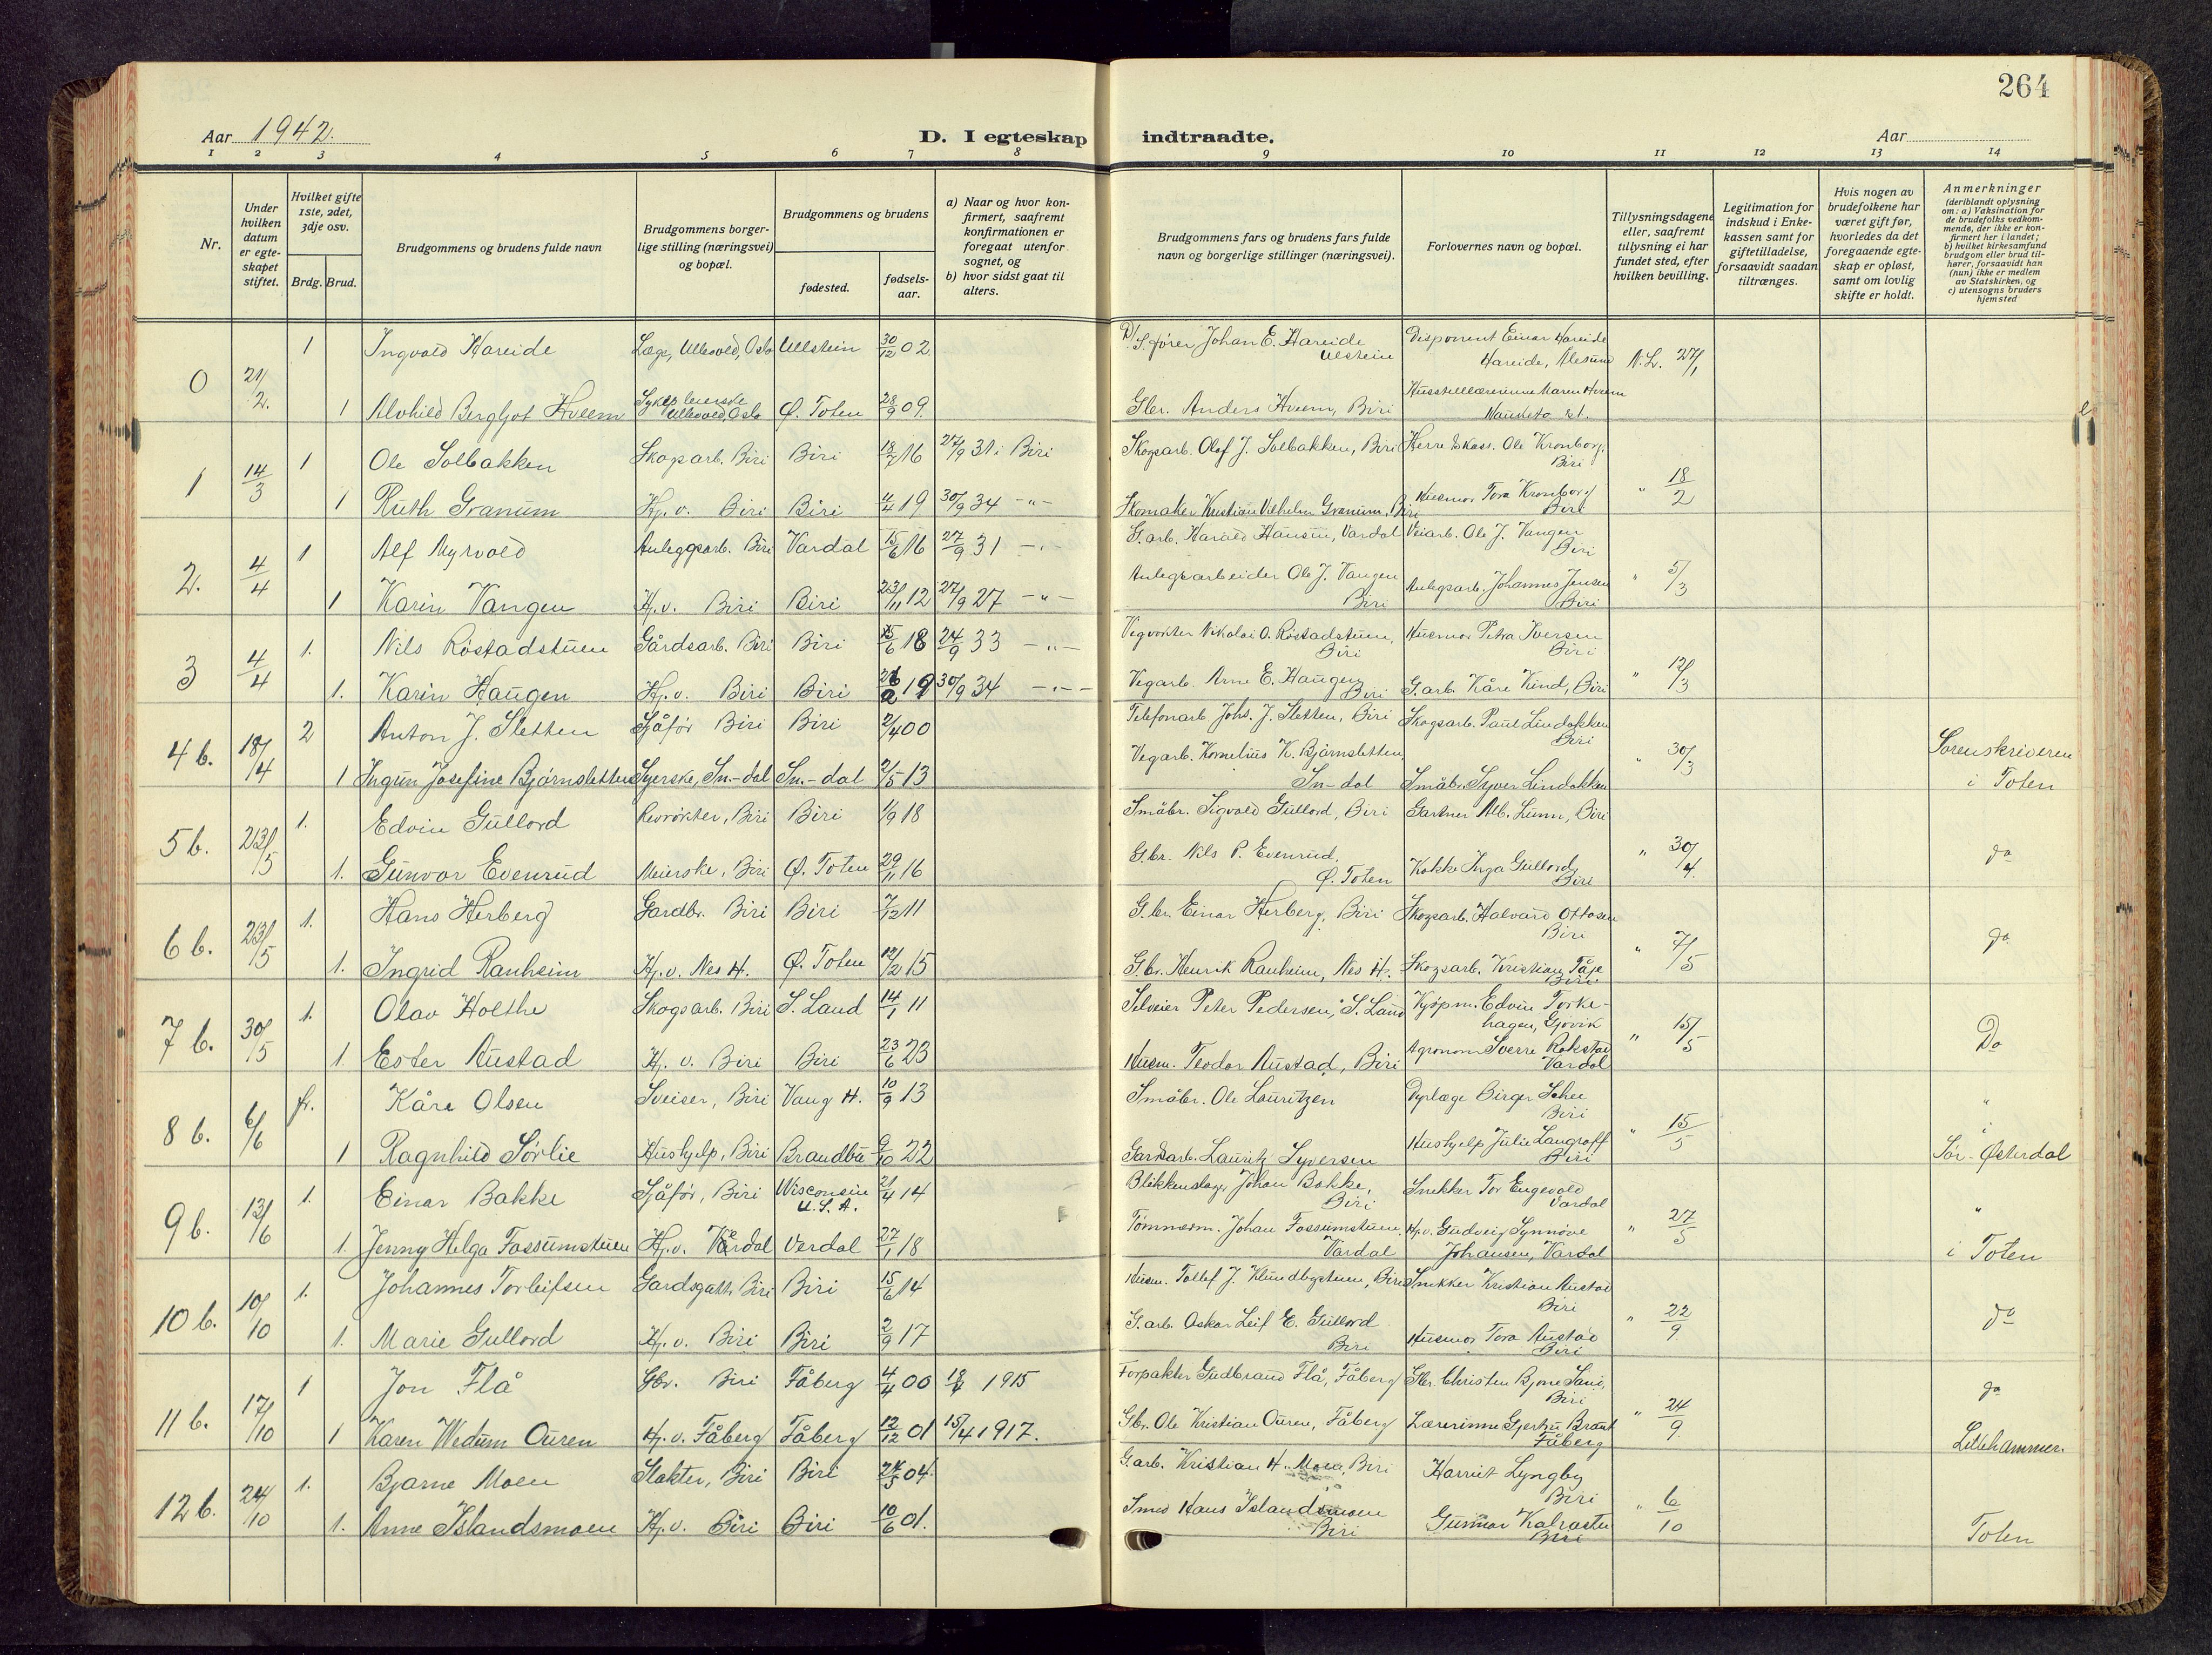 264
Aar 1942.
D. I egteskap indtraadte.
Aar
1 2 3 4 5 6 7 8 9 10 11 12 13 14
Nr.
Under hvilken datum er egteskapet stiftet.
Hvilket gifte 1ste, 2det, 3dje osv.
Brdg. Brud.
Brudgommens og brudens fulde navn
Brudgommens borgerlige stilling (næringsvei) og bopæl.
Brudgommens og brudens
fødested.
fødselsaar.
a) Naar og hvor konfirmert, saafremt konfirmationen er foregaat utenfor sognet, og
b) hvor sidst gaat til alters.
Brudgommens fars og brudens fars fulde navn og borgerlige stillinger (næringsvei).
Forlovernes navn og bopæl.
Tillysningsdagene eller, saafremt tillysning ei har fundet sted, efter hvilken bevilling.
Legitimation for indskud i Enkekassen samt for giftetilladelse, forsaavidt saadan tiltrænges.
Hvis nogen av brudefolkene har været gift før, hvorledes da det foregaaende egteskap er opløst, samt om lovlig skifte er holdt.
Anmerkninger
(deriblandt oplysning om: a) Vaksination for de brudefolks vedkommende, der ikke er konfirmert her i landet; b) hvilket kirkesamfund brudgom eller brud tilhører, forsaavidt han (nun) ikke er medlem av Statskirken, og c) utensogns bruders hjemsted
0 21/2. 1 Ingvald Hareide Læge, Ullevold, Oslo Ullstein 30/12 02 S.fører Johan E. Hareide Ulstein Disponent Einar Hareide Hareide, Alesund N.L. 27/1
1 Alvhild Bergljot Hveem Ullevold, Oslo Ø. Toten 28/9 09. Gbr. Anders Hveem, Biri Maren Hveem
1 14/3 1 Ole Solbakken Skogsarb. Biri Biri 18/7 16 27/9 31 i Biri Skogsarb. Olaf J. Solbakken, Biri Ole Kronborg, Biri " 18/2
1 Ruth Granum Hj.v. Biri Biri 4/4 19 30/9 34 -"- Skomaker Kristian Vilhelm Granum, Biri Husmor Tora Kronborg Biri
2. 4/4 1 Alf Myrvold Anleggsarb. Biri Vardal 15/6 16 27/9 31 -"- G.arb. Harald Hansen, Vardal Veiarb. Ole J. Vangen Biri " 5/3
1 Karin Vangen Hj.v. Biri Biri 23/11 12 27/9 27 -"- Anlegsarbeider Ole J. Vangen Biri Anlegsarb. Johannes Jensen Biri
3 4/4 1. Nils Röstadstuen Gårdsarb. Biri Biri 15/6 18 24/9 33 -"- Vegvokter Nikolai O. Röstadstuen, Biri Husmor Petra Iversen Biri " 12/3
1. Karin Haugen Hj.v. Biri Biri 26/2 19 30/9 34 -"- Vegarb. Arne E. Haugen Biri G.arb. Kåre Kind, Biri
4 b. 18/4 2 Anton J. Sletten Sjåför Biri Biri 2/4 00 Telefonarb. Johs. J. Sletten, Biri Skogsarb. Paul Lindokken Biri " 30/3 Sorenskriveren i Toten
1 Ingun Josefine Björnsletten Syerske, Sn.-dal Sn.-dal 2/5 13 Vegarb. Kornelius K. Björnsletten, Sn-dal Småbr. Syver Lindokken
5 b. 23/5 1. Edvin Gullord Revrökter, Biri Biri 1/9 18 Småbr. Sigvald Gullord, Biri Gartner Alb. Lunn, Biri " 30/4. do
1. Gunvor Evenrud Meierske, Biri Ø. Toten 29/11 16 G.br. Nils P. Evenrud, Ø. Toten Kokke Inga Gullord, Biri
6 b. 23/5 1. Hans Herberg Gardbr. Biri Biri 7/12 11 G.br. Einar Herberg, Biri Skogsarb. Halvard Ottosen Biri " 7/5 do
1. Ingrid Ranheim Hj.v. Nes H. Ø. Toten 12/2 15 G.br. Henrik Ranheim, Nes H. Skogsarb. Kristian Tåje Biri
7 b. 30/5 1. Olav Holthe Skogsarb. Biri S. Land 14/1 11 Selveier Peter Pedersen, S. Land Kjöpm. Edvin Torkehagen, Gjövik " 15/5 Do
1. Ester Austad Hj.v. Biri Biri 23/6 23 Husm. Teodor Austad, Biri Agronom Sverre Rokstad Vardal
8 b. 6/6 fr. Kåre Olsen Sveiser, Biri Vang H. 10/9 13 Småbr. Ole Lauritzen Dyrlæge Birger Schee Biri " 15/5 "
1 Ragnhild Sörlie Hushjelp, Biri Brandbu 9/10 22 Gardsarb. Lauritz Syversen Hushjelp Julie Langroff Biri Sör-Østerdal
9 b. 13/6 1. Einar Bakke Sjåför, Biri Wisconsin U.S.A. 21/4 14 Blikkenslager Johan Bakke, Biri Snekker Tor Engevold Vardal " 27/5 "
1. Jenny Helga Fossumstuen Hj.v. Vardal Verdal 27/1 18 Tömmerm. Johan Fossumstuen, Vardal Hj.v. Gudveig Synnöve Johansen, Vardal i Toten
10 b. 10/10 1. Johannes Torleifsen Gardsgutt, Biri Biri 15/6 14 Husm. Tollef J. Klundbystuen, Biri Snekker Kristian Austad Biri " 22/9 do
1. Marie Gullord Hj.v. Biri Biri 2/9 17 G.arb. Oskar Leif E. Gullord Biri Husmor Tora Austad Biri
11 b. 17/10 1 Jon Flå Gbr. Biri Fåberg 4/4 00 1915 Forpakter Gudbrand Flå, Fåberg Gbr. Christen Bjone Biri " 24/9 do
1 Karen Wedum Ouren Hj.v. Fåberg Fåberg 12/12 01 15/4 1917. Gbr. Ole Kristian Ouren, Fåberg Lærerinne Fåberg Lillehammer.
12 b. 24/10 1. Bjarne Moen Slakter, Biri Biri 04. G.arb. Kristian H. Moen, Biri Harriet Lyngby Biri " 6/10
1. Anne Islandsmoen Hj.v. Biri Biri 10/6 01. Smed Hans Islandsmoen Biri Gunnar Biri Toten